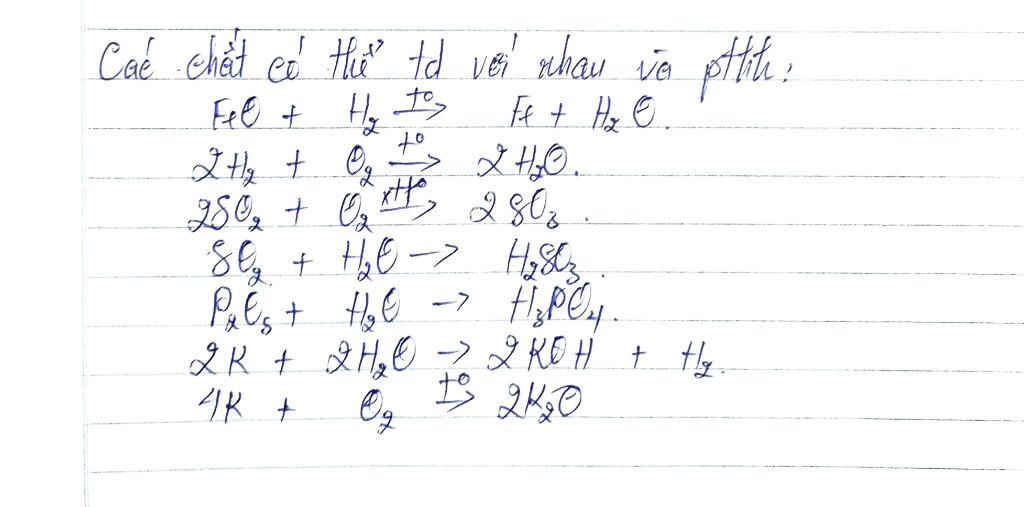 Các chất có thể td với nhau và ptth:
FeO + H₂ →(t°) Fe + H₂O.
2H₂ + O₂ →(t°) 2H₂O.
2SO₂ + O₂ →(xtt°) 2SO₃.
SO₂ + H₂O → H₂SO₃.
P₂O₅ + H₂O → H₃PO₄.
2K + 2H₂O → 2KOH + H₂.
4K + O₂ →(t°) 2K₂O